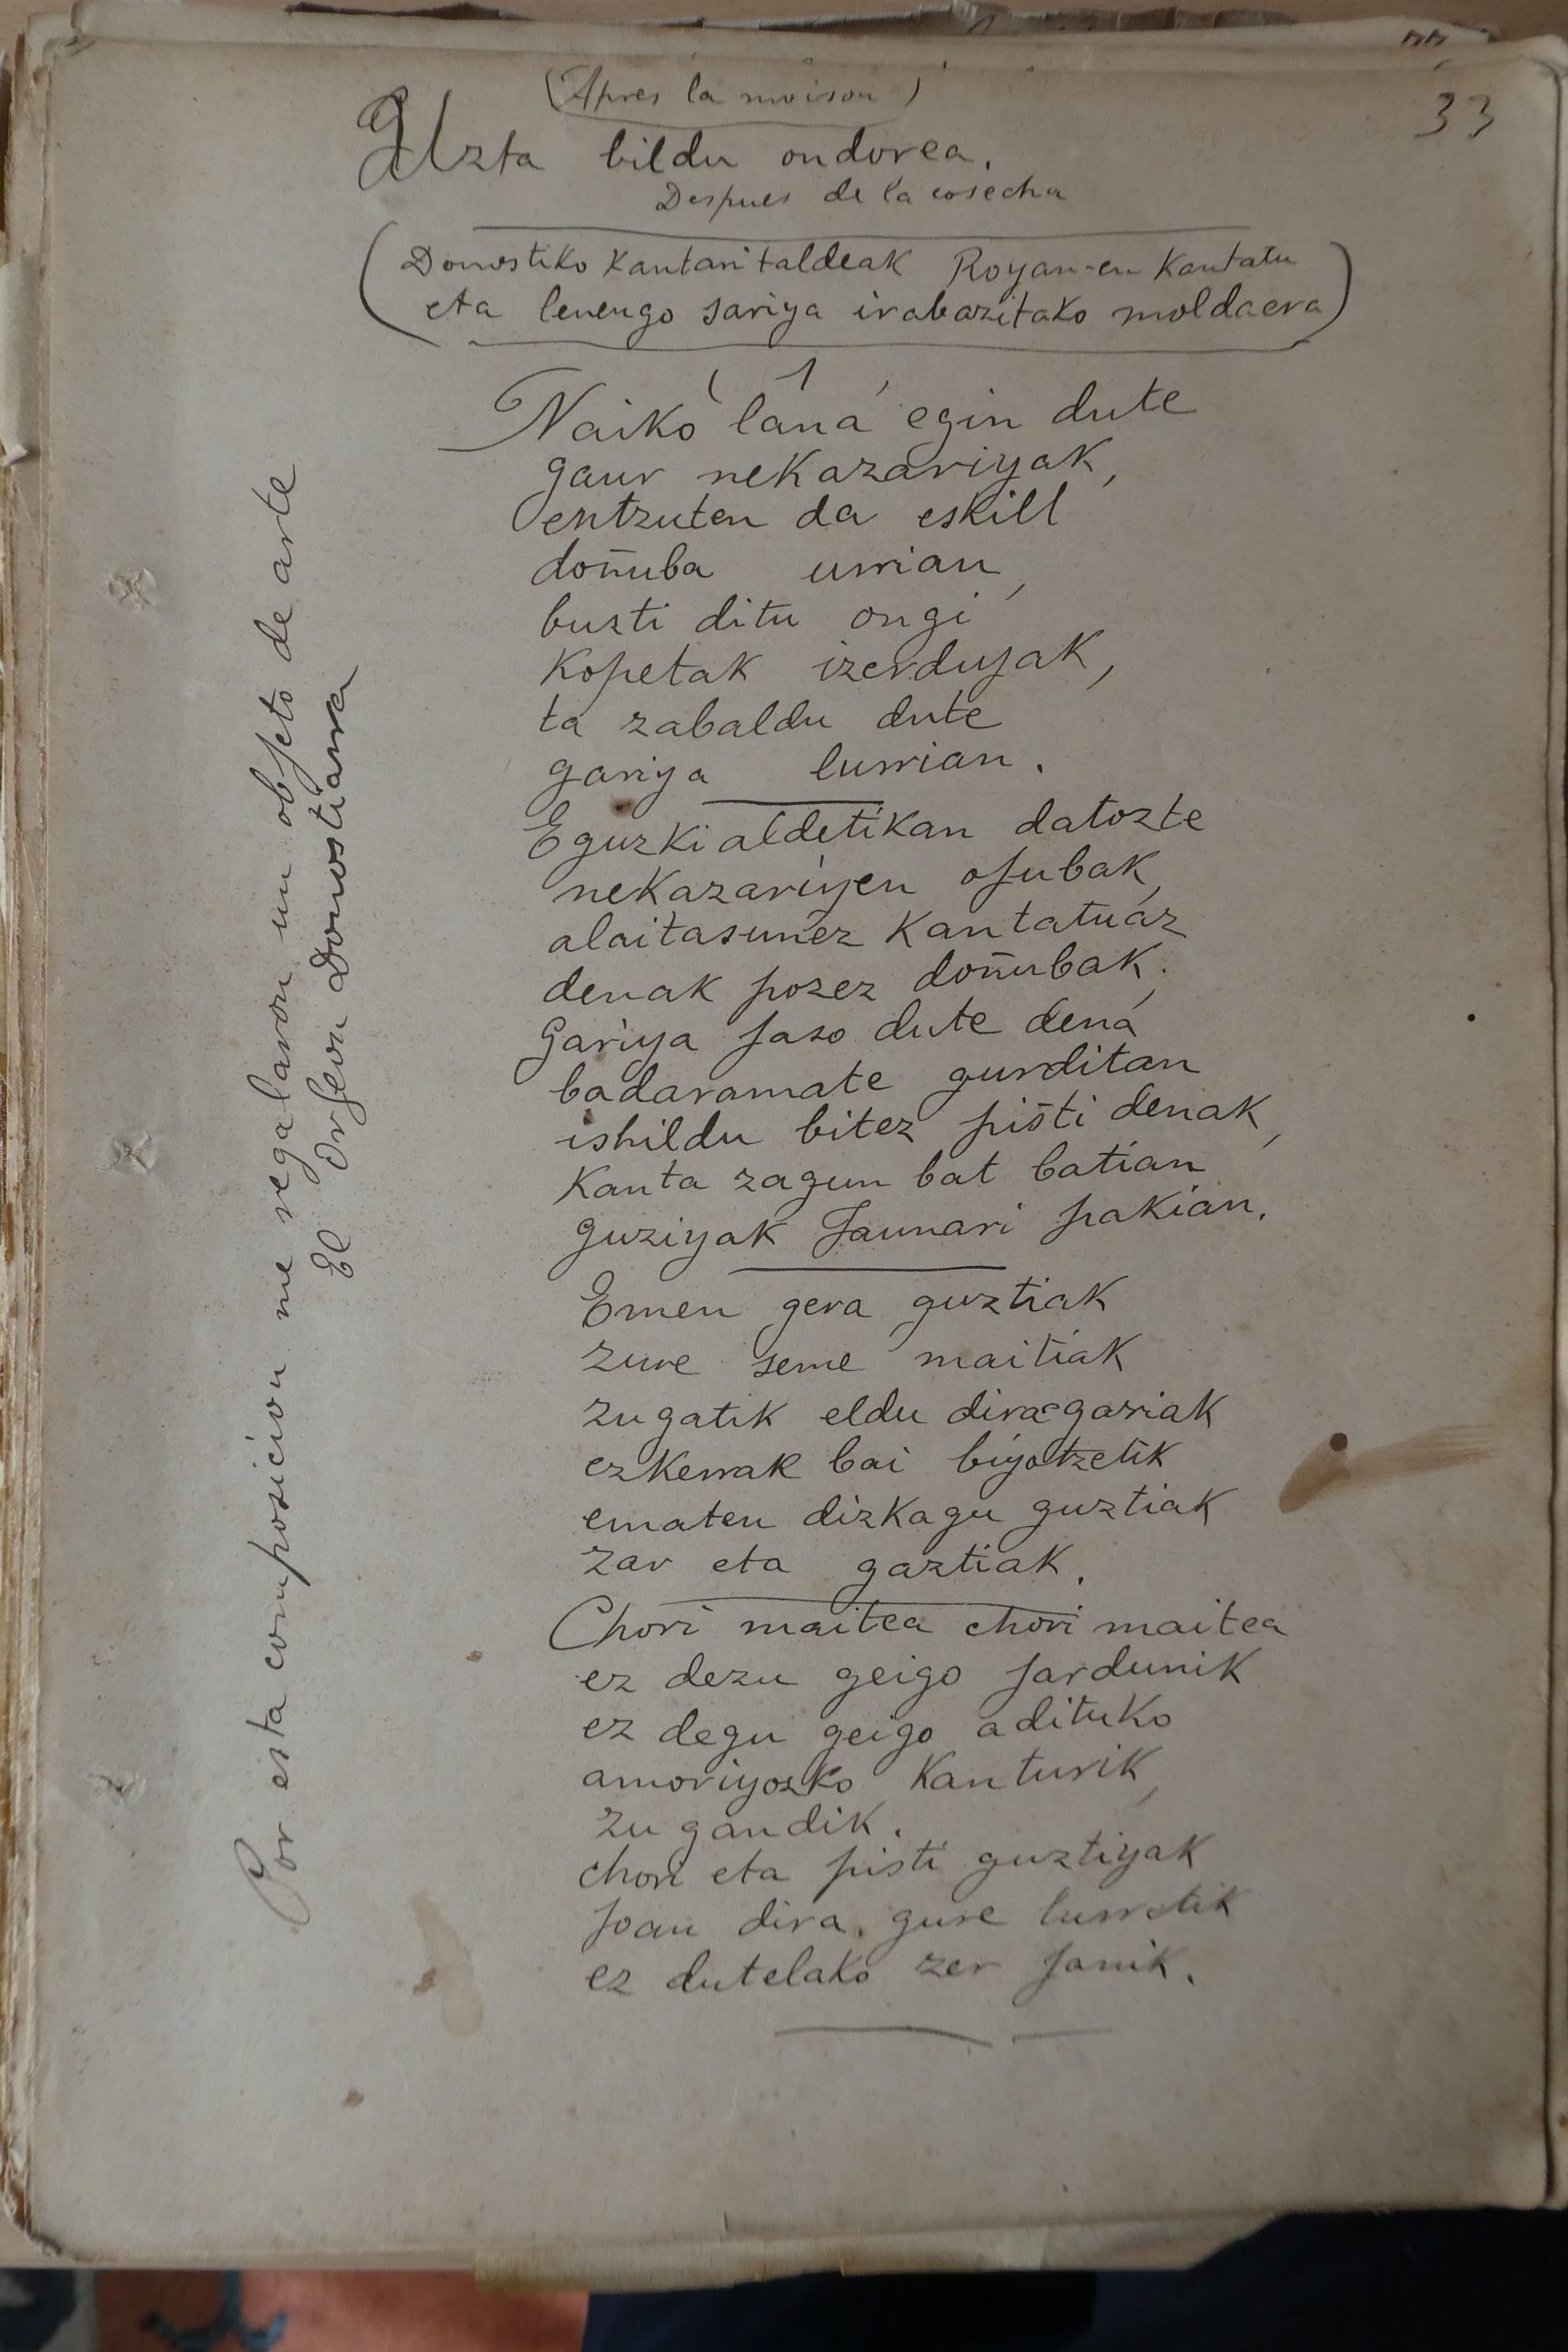 33
(Apres la moison)
Uzta bildu ondorea.
Despues de la cosecha
(Donostiko Kantari taldeak Royan-en Kantatu
eta lenengo sariya irabazitako moldaera)
1
Naiko lana egin dute
gaur nekazariyak,
entzuten da eskill
doñuba urrian,
busti ditu ongi
Kopetak izerdujak,
ta zabaldu dute
gariya lurrian.
Eguzki aldetikan datozte
nekazariyen ojubak,
alaitasunez Kantatuaz
denak pozez doñubak.
Gariya jaso dute dena
badaramate gurditan
ishildu bitez pišti denak,
Kanta zagun bat batian
guziyak Jaunari pakian.
Emen gera guztiak
zure seme maitiak
zugatik eldu dira gariak
ezkerrak bai biyotzetik
ematen dizkagu guztiak
zar eta gaztiak.
Chori maitea chori maitea
ez dezu geigo jardunik
ez degu geigo adituko
amoriyozko Kanturik,
zugandik.
chori eta pisti guztiyak
Joan dira, gure lurretik
ez dutelako zer janik.
Por esta composicion me regalaron un objeto de arte
El Orfeon Donostiarra